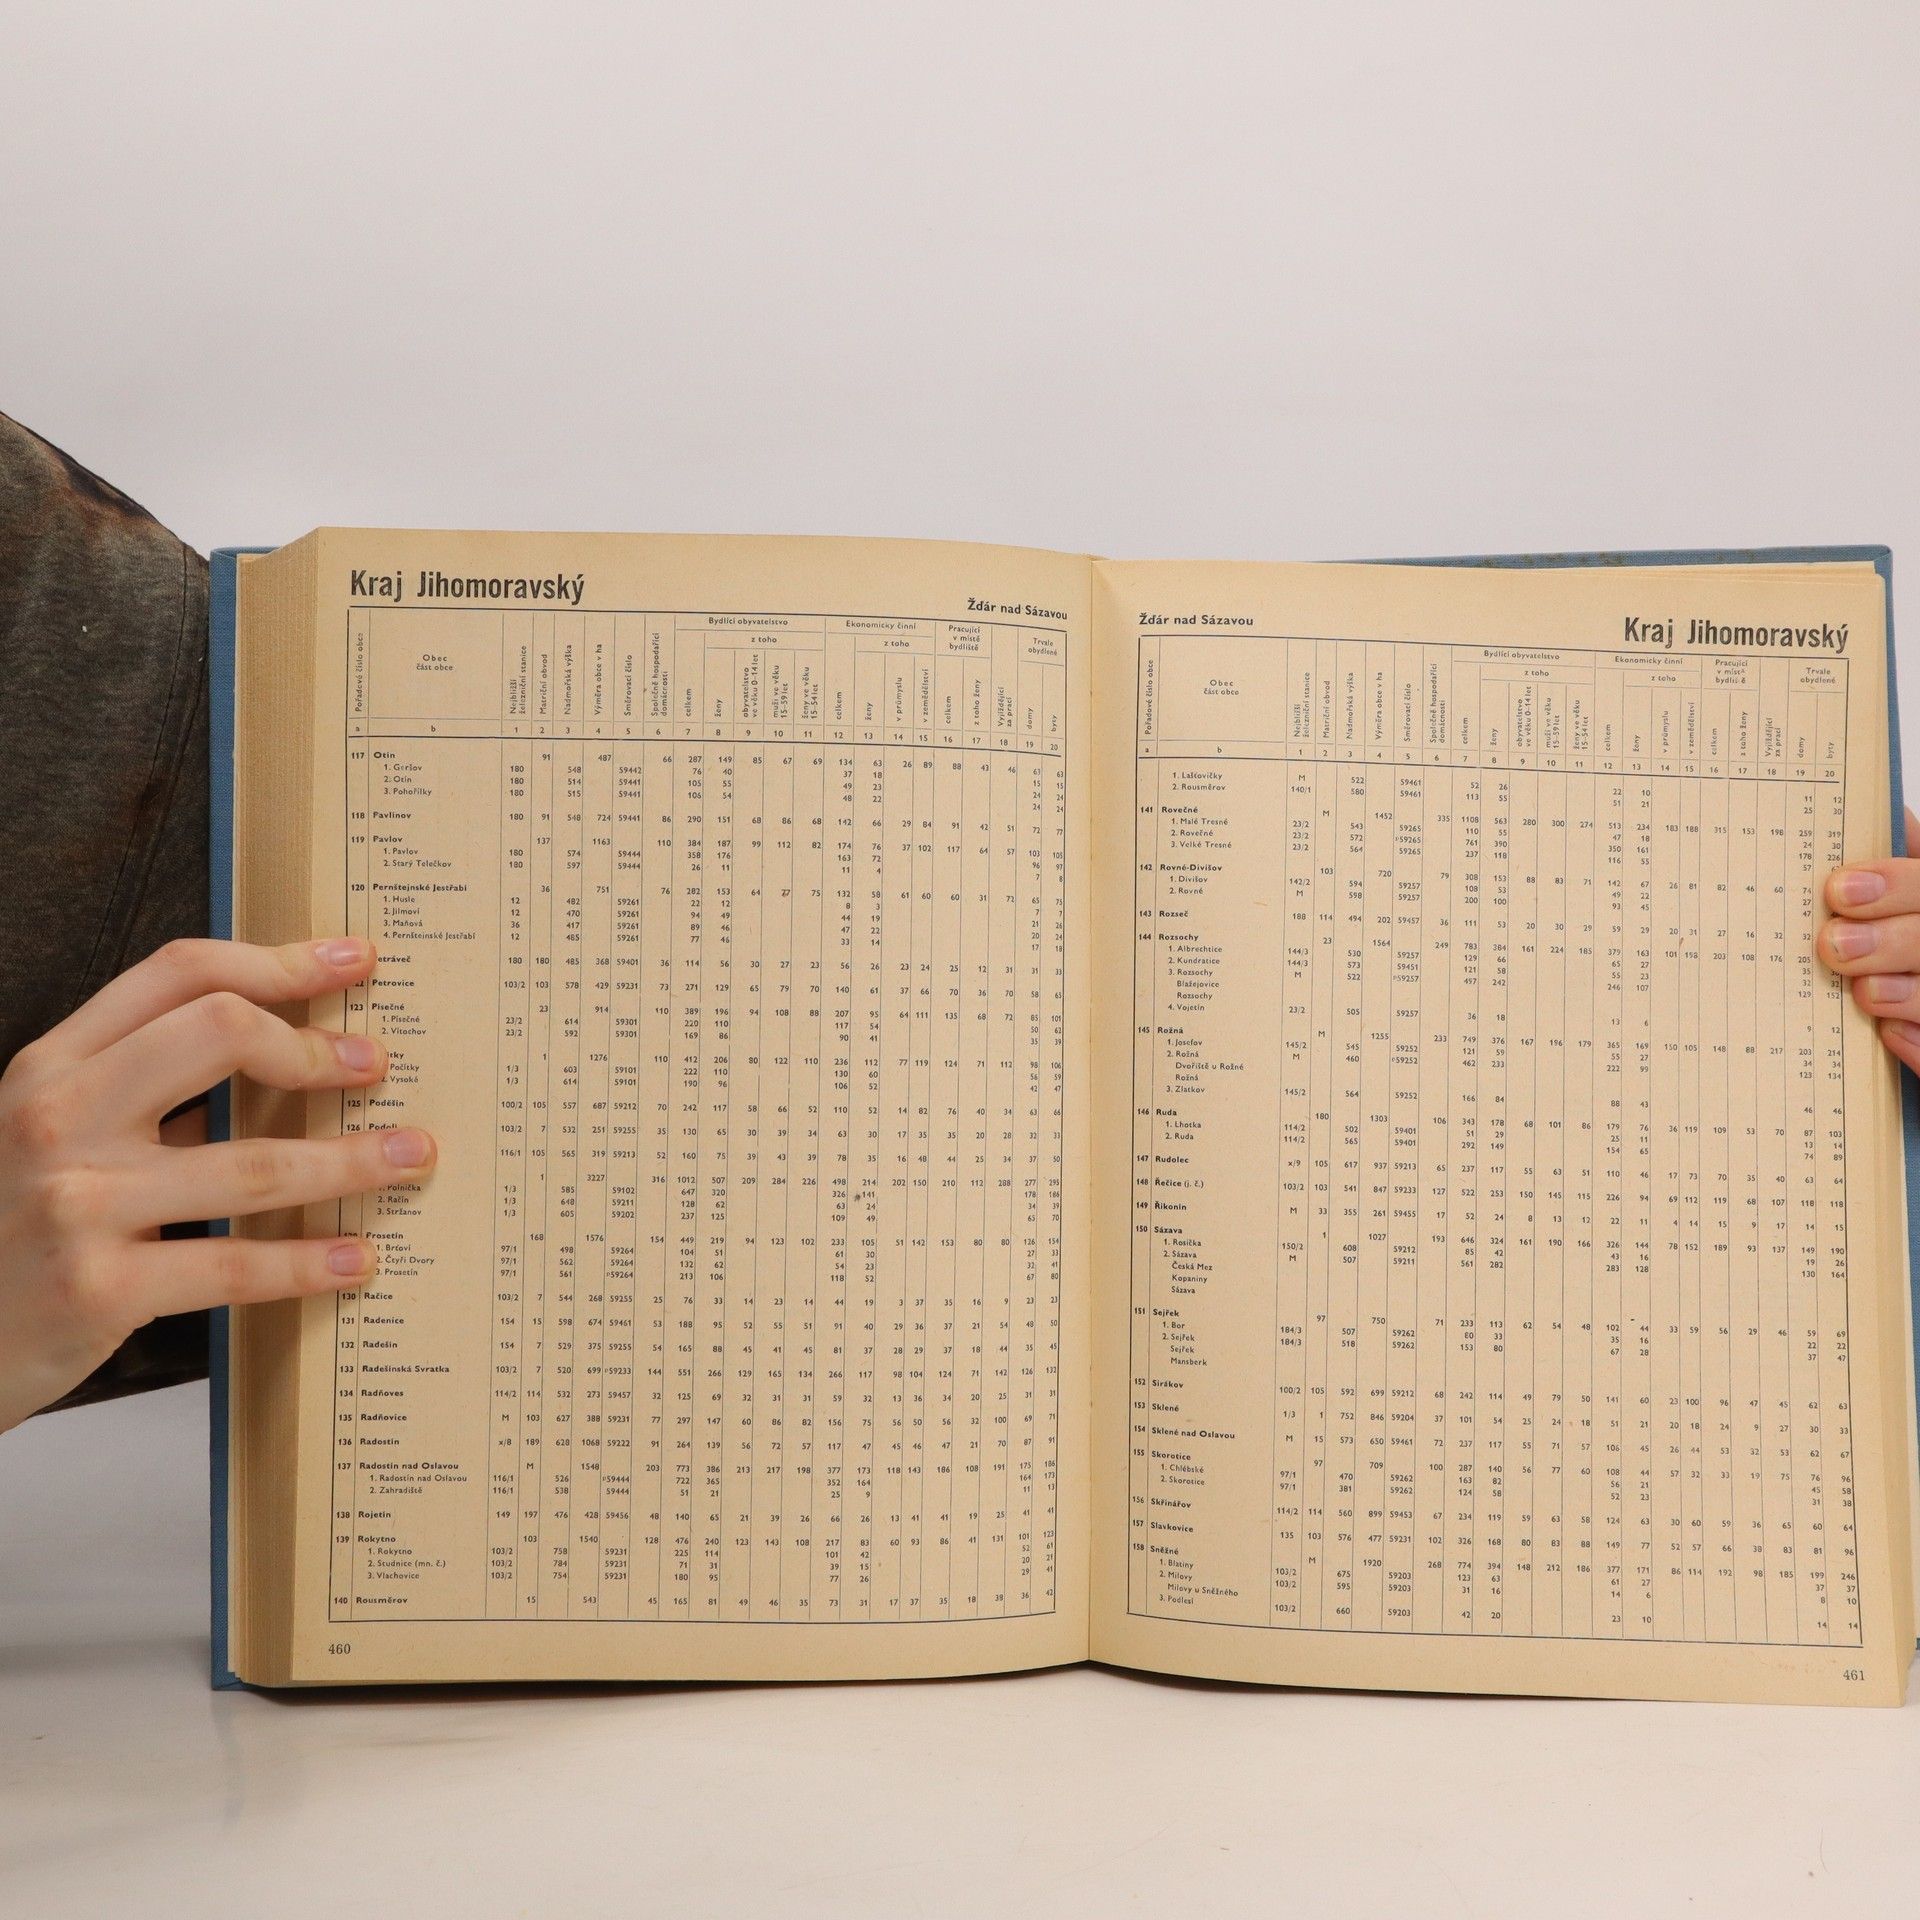 Kraj Jihomoravský
Žďár nad Sázavou
Pořadové číslo obce
Obec
část obce
Nejbližší železniční stanice
Matriční obvod
Nadmořská výška
Výměra obce v ha
Směrovací číslo
Společně hospodařící domácnosti
Bydlící obyvatelstvo
z toho
celkem
ženy
obyvatelstvo ve věku 0-14 let
muži ve věku 15-59 let
ženy ve věku 15-54 let
Ekonomicky činní
z toho
celkem
ženy
v průmyslu
v zemědělství
Pracující v místě bydliště
celkem
z toho ženy
Vyjíždějící za prací
Trvale obydlené
domy
byty
a b 1 2 3 4 5 6 7 8 9 10 11 12 13 14 15 16 17 18 19 20
117 Otín 91 487 66 287 149 85 67 69 134 63 26 89 88 43 46 63 63
1. Geršov 180 548 59442 76 40 37 18 15 15
2. Otín 180 514 59441 105 55 49 23 24 24
3. Pohořílky 180 515 59441 106 54 48 22 24 24
118 Pavlínov 180 91 548 724 59441 86 290 151 68 86 68 142 66 29 84 91 42 51 72 77
119 Pavlov 137 1163 110 384 187 99 112 82 174 76 37 102 117 64 57 103 105
1. Pavlov 180 574 59444 358 176 163 72 96 97
2. Starý Telečkov 180 597 59444 26 11 11 4 7 8
120 Pernštejnské Jestřabí 36 751 76 282 153 64 77 75 132 58 61 60 60 31 72 65 75
1. Husle 12 482 59261 22 12 8 3 7 7
2. Jilmoví 12 470 59261 94 49 44 19 21 26
3. Maňová 36 417 59261 89 46 47 22 20 24
4. Pernštejnské Jestřabí 12 485 59261 77 46 33 14 17 18
etráveč 180 180 485 368 59401 36 114 56 30 27 23 56 26 23 24 25 12 31 31 33
Petrovice 103/2 103 578 429 59231 73 271 129 65 79 70 140 61 37 66 70 36 70 58 65
123 Písečné 23 914 110 389 196 94 108 88 207 95 64 111 135 68 72 85 101
1. Písečné 23/2 614 59301 220 110 117 54 50 62
2. Vítochov 23/2 592 59301 169 86 90 41 35 39
tky 1 1276 110 412 206 80 122 110 236 112 77 119 124 71 112 98 106
Počítky 1/3 603 59101 222 110 130 60 56 59
Vysoké 1/3 614 59101 190 96 106 52 42 47
125 Poděšín 100/2 105 557 687 59212 70 242 117 58 66 52 110 52 14 82 76 40 34 63 66
126 Podolí 103/2 7 532 251 59255 35 130 65 30 39 34 63 30 17 35 35 20 28 32 33
116/1 105 565 319 59213 52 160 75 39 43 39 78 35 16 48 44 25 34 37 50
1 3227 316 1012 507 209 284 226 498 214 202 150 210 112 288 277 295
1. Polnička 1/3 585 59102 647 320 326 141 178 186
2. Račín 1/3 648 59211 128 62 63 24 34 39
3. Stržanov 1/3 605 59202 237 125 109 49 65 70
Prosetín 168 1576 154 449 219 94 123 102 233 105 51 142 153 80 80 126 154
1. Brťoví 97/1 498 59264 104 51 61 30 27 33
2. Čtyři Dvory 97/1 562 59264 132 62 54 23 32 41
3. Prosetín 97/1 561 p59264 213 106 118 52 67 80
130 Račice 103/2 7 544 268 59255 25 76 33 14 23 14 44 19 3 37 35 16 9 23 23
131 Radenice 154 15 598 674 59461 53 188 95 52 55 51 91 40 29 36 37 21 54 48 50
132 Radešín 154 7 529 375 59255 54 165 88 45 41 45 81 37 28 29 37 18 44 35 45
133 Radešínská Svratka 103/2 7 520 699 p59233 144 551 266 129 165 134 266 117 98 104 124 71 142 126 132
134 Radňoves 114/2 114 532 273 59457 32 125 69 32 31 31 59 32 13 36 34 20 25 31 31
135 Radňovice M 103 627 388 59231 77 297 147 60 86 82 156 75 56 50 56 32 100 69 71
136 Radostín x/8 189 628 1068 59222 91 264 139 56 72 57 117 47 45 46 47 21 70 87 91
137 Radostín nad Oslavou M 1548 203 773 386 213 217 198 377 173 118 143 186 108 191 175 186
1. Radostín nad Oslavou 116/1 526 p59444 722 365 352 164 164 173
2. Zahradiště 116/1 538 59444 51 21 25 9 11 13
138 Rojetín 149 197 476 428 59456 48 140 65 21 39 26 66 26 13 41 41 19 25 41 41
139 Rokytno 103 1540 128 476 240 123 143 108 217 83 60 93 86 41 131 101 123
1. Rokytno 103/2 758 59231 225 114 101 42 52 61
2. Studnice (mn. č.) 103/2 784 59231 71 31 39 15 20 21
3. Vlachovice 103/2 754 59231 180 95 77 26 29 41
140 Rousměrov 15 543 45 165 81 49 46 35 73 31 17 37 35 18 38 36 42
460
Žďár nad Sázavou
Kraj Jihomoravský
Pořadové číslo obce
Obec
část obce
Nejbližší železniční stanice
Matriční obvod
Nadmořská výška
Výměra obce v ha
Směrovací číslo
Společně hospodařící domácnosti
Bydlící obyvatelstvo
z toho
celkem
ženy
obyvatelstvo ve věku 0-14 let
muži ve věku 15-59 let
ženy ve věku 15-54 let
Ekonomicky činní
z toho
celkem
ženy
v průmyslu
v zemědělství
Pracující v místě bydliště
celkem
z toho ženy
Vyjíždějící za prací
Trvale obydlené
domy
byty
a b 1 2 3 4 5 6 7 8 9 10 11 12 13 14 15 16 17 18 19 20
1. Lašťovičky M 522 59461 52 26 22 10 11 12
2. Rousměrov 140/1 580 59461 113 55 51 21 25 30
141 Rovečné M 1452 335 1108 563 280 300 274 513 234 183 188 315 153 198 259 319
1. Malé Tresné 23/2 543 59265 110 55 47 18 24 30
2. Rovečné 23/2 572 p59265 761 390 350 161 178 226
3. Velké Tresné 23/2 564 59265 237 118 116 55 57
142 Rovné-Divišov 103 720 79 308 153 88 83 71 142 67 26 81 82 46 60 74
1. Divišov 142/2 594 59257 108 53 49 22 27
2. Rovné M 598 59257 200 100 93 45 47
143 Rozseč 188 114 494 202 59457 36 111 53 20 30 29 59 29 20 31 27 16 32 32
144 Rozsochy 23 1564 249 783 384 161 224 185 379 163 101 158 203 108 176 205
1. Albrechtice 144/3 530 59257 129 66 65 27 35
2. Kundratice 144/3 573 59451 121 58 55 23 32 32
3. Rozsochy M 522 p59257 497 242 246 107 129 152
Blažejovice
Rozsochy
4. Vojetín 23/2 505 59257 36 18 13 6 9 12
145 Rožná M 1255 233 749 376 167 196 179 365 169 150 105 148 88 217 203 214
1. Josefov 145/2 545 59252 121 59 55 27 34 34
2. Rožná M 460 p59252 462 233 222 99 123 134
Dvořiště u Rožné
Rožná
3. Zlatkov 145/2 564 59252 166 84 88 43 46 46
146 Ruda 180 1303 106 343 178 68 101 86 179 76 36 119 109 53 70 87 103
1. Lhotka 114/2 502 59401 51 29 25 11 13 14
2. Ruda 114/2 565 59401 292 149 154 65 74 89
147 Rudolec x/9 105 617 937 59213 65 237 117 55 63 51 110 46 17 73 70 35 40 63 64
148 Řečice (j. č.) 103/2 103 541 847 59233 127 522 253 150 145 115 226 94 69 112 119 68 107 118 118
149 Řikonín M 33 355 261 59455 17 52 24 8 13 12 22 11 4 14 15 9 17 14 15
150 Sázava 1 1027 193 646 324 161 190 166 326 144 78 152 189 93 137 149 190
1. Rosička 150/2 608 59212 85 42 43 16 19 26
2. Sázava M 507 59211 561 282 283 128 130 164
Česká Mez
Kopaniny
Sázava
151 Sejřek 97 750 71 233 113 62 54 48 102 44 33 59 56 29 46 59 69
1. Bor 184/3 507 59262 80 33 35 16 22 22
2. Sejřek 184/3 518 59262 153 80 67 28 37 47
Sejřek
Mansberk
152 Sirákov 100/2 105 592 699 59212 68 242 114 49 79 50 141 60 23 100 96 47 45 62 63
153 Sklené 1/3 1 752 846 59204 37 101 54 25 24 18 51 21 20 18 24 9 27 30 33
154 Sklené nad Oslavou M 15 573 650 59461 72 237 117 55 71 57 106 45 26 44 53 32 53 62 67
155 Skorotice 97 709 100 287 140 56 77 60 108 44 57 32 33 19 75 76 96
1. Chlébské 97/1 470 59262 163 82 56 21 45 58
2. Skorotice 97/1 381 59262 124 58 52 23 31 38
156 Skřinářov 114/2 114 560 899 59453 67 234 119 59 63 58 124 63 30 60 59 36 65 60 64
157 Slavkovice 135 103 576 477 59231 102 326 168 80 83 88 149 77 52 57 66 38 83 81 96
158 Sněžné M 1920 268 774 394 148 212 186 377 171 86 114 192 98 185 199 246
1. Blatiny 103/2 675 59203 123 63 61 27 37 37
2. Milovy 103/2 595 59203 31 16 14 6 8 10
Milovy u Sněžného
3. Podlesí 103/2 660 59203 42 20 23 10 14 14
461